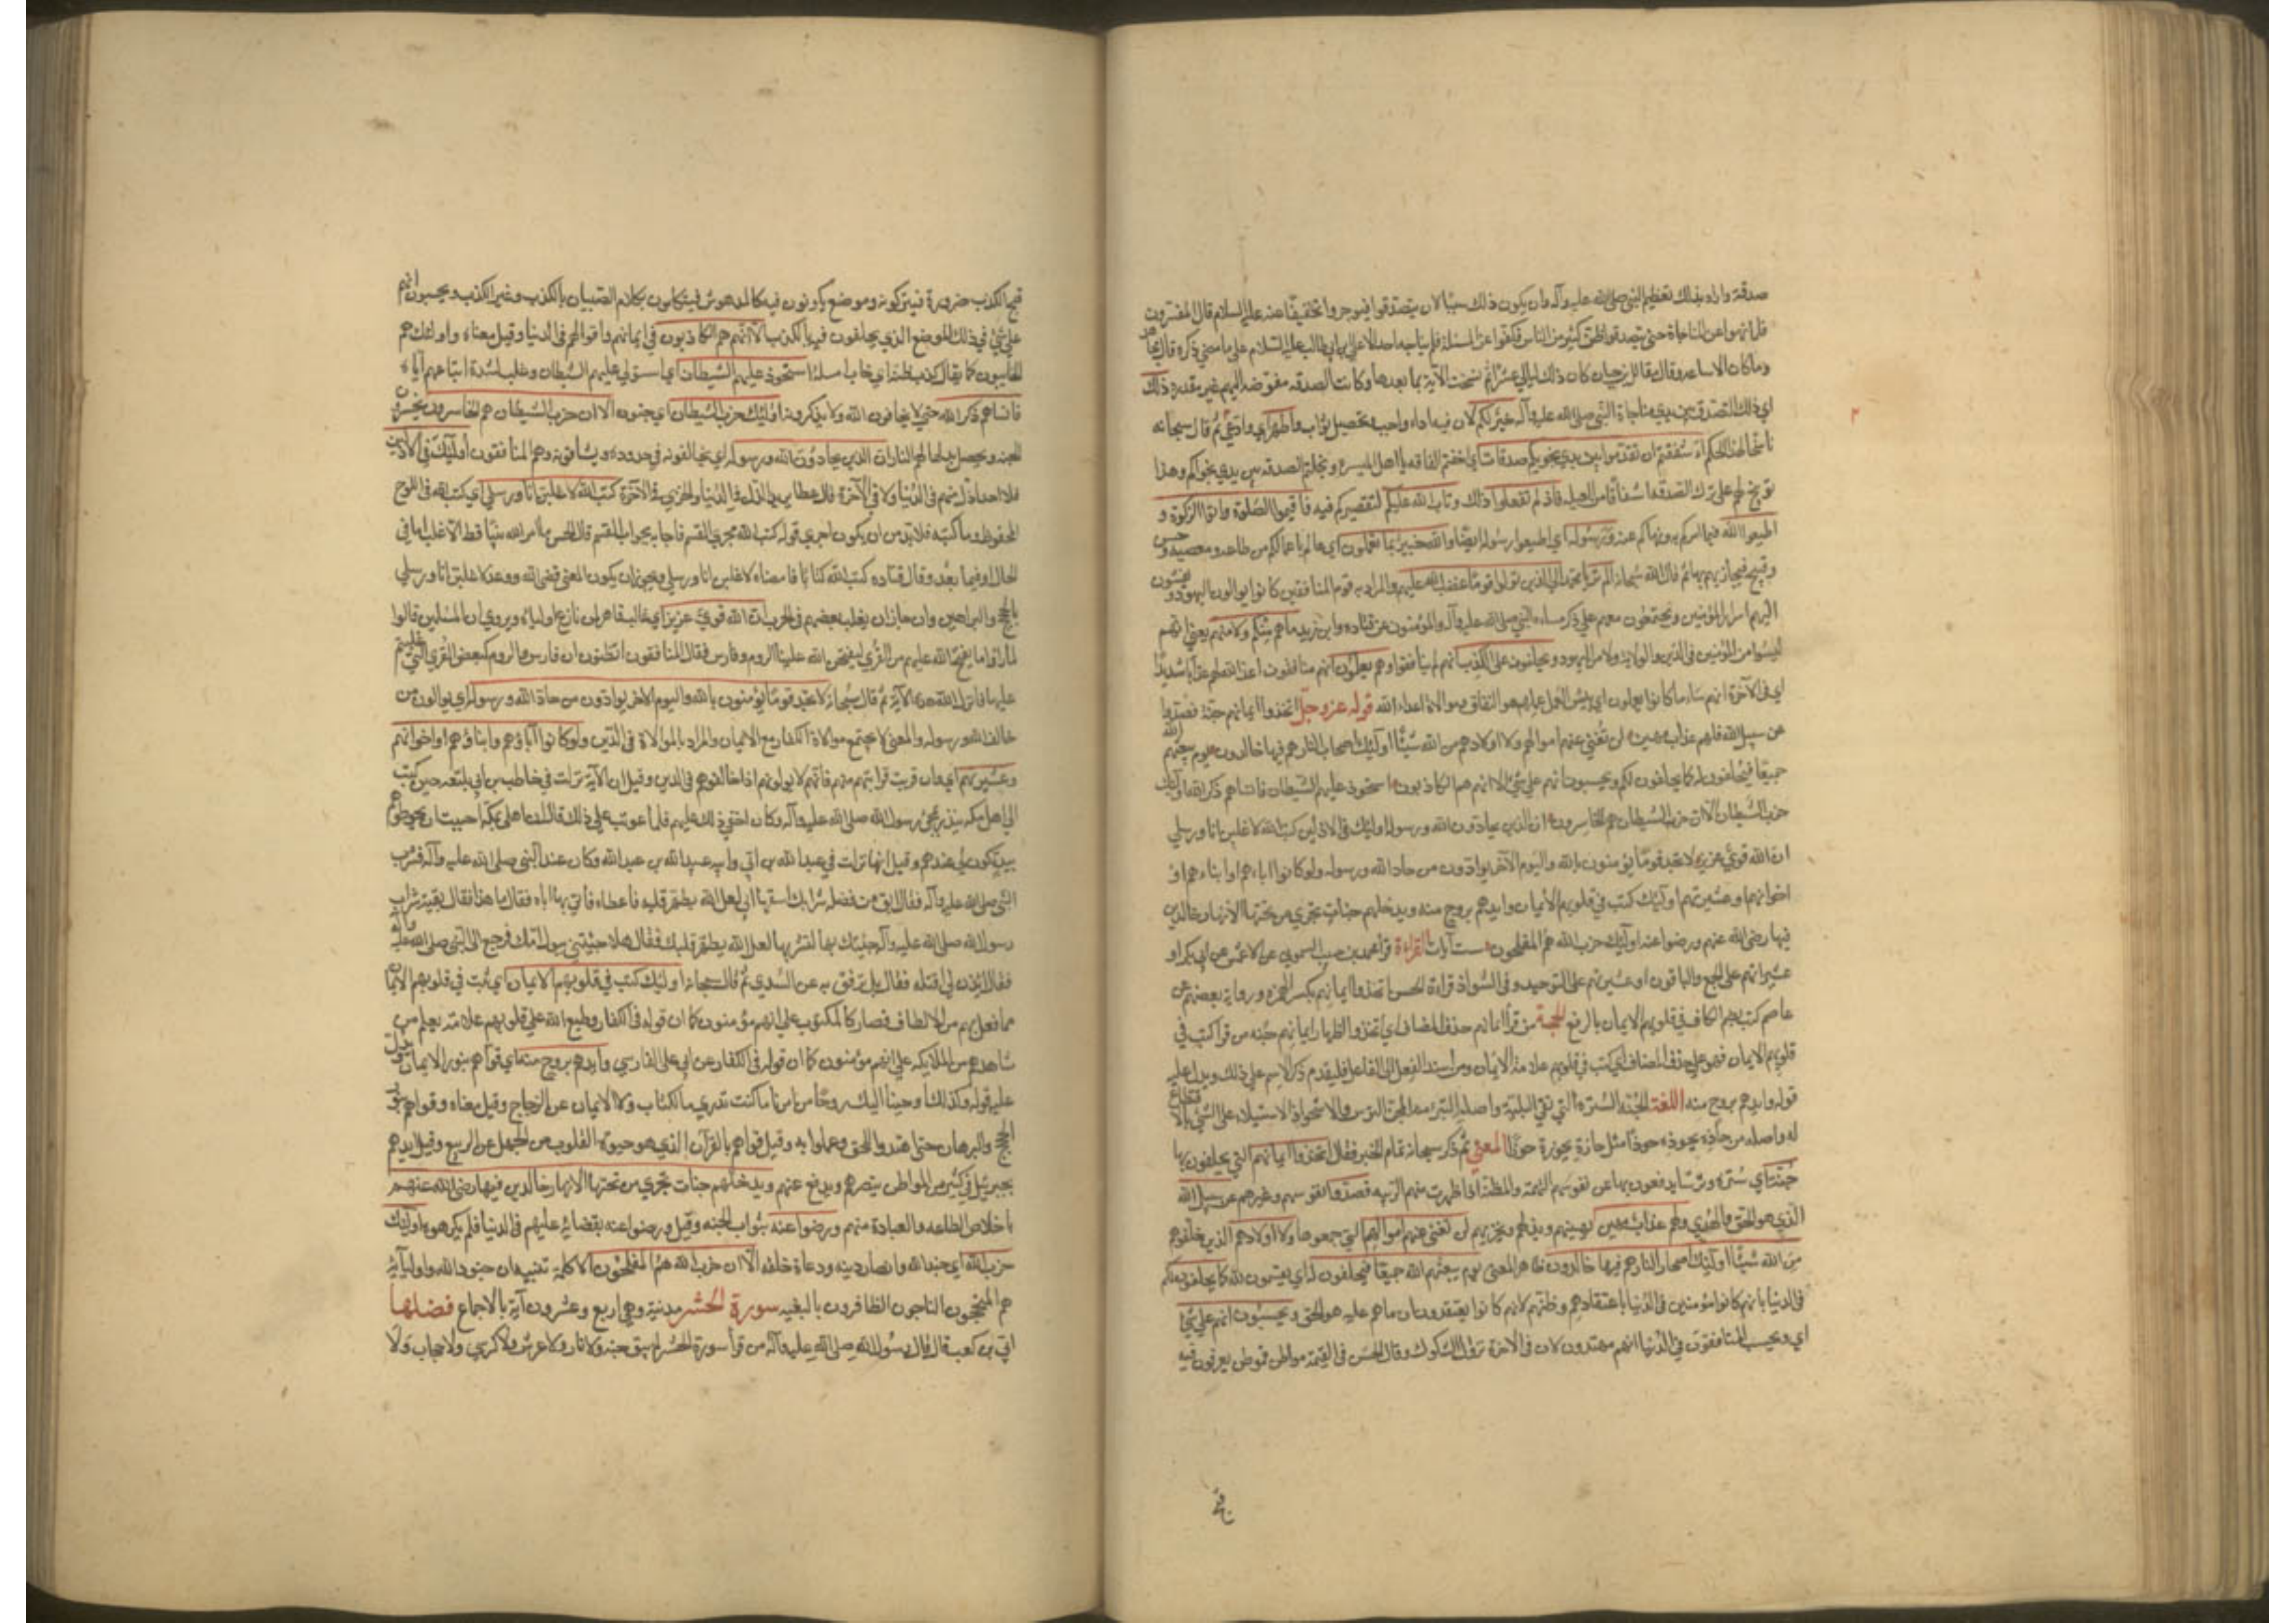 صدقة واراد بذلك تعظيم النبي صلى الله عليه وآله وان يكون ذلك سببا لان يتصدقوا فيوجروا وتخفيفا عنه عليه السلام قال المفسرون
فلما نهوا عن المناجاة حتى يتصدقوا ظن كثير من الناس فكفوا عن المسئلة فلم يناجه احد الا علي بن ابي طالب عليه السلام على ما مضى ذكره قال مجاهد
وما كان الا ساعه وقال مقاتل بن حيان كان ذلك ليالي عشرا ثم نسخت الآية بما بعدها وكانت الصدقه مفوضه اليهم غير مقدرة ذلك
اي ذلك التصدق بين يدي مناجاة النبي صلى الله عليه وآله خير لكم لان فيه اداء واجب وتحصيل ثواب واطهر اي وادعى ثم قال سبحانه
ناسخا لهذا الحكم أأشفقتم ان تقدموا بين يدي نجويكم صدقات اي اخفتم الفاقه يا اهل الميسرة وبخلتم بالصدقه بين يدي نجواكم وهذا
توبيخ لهم على ترك الصدقه اشفاقا من العيله فاذ لم تفعلوا ذلك وتاب الله عليكم لتقصيركم فيه فاقيموا الصلوة واتوا الزكوة و
اطيعوا الله فيما امركم به ونهاكم عنه ورسوله اي اطيعوا رسوله ايضا والله خبير بما تعملون اي عالم باعمالكم من طاعه ومعصيه وحسن
وقبيح فيجازيهم بها ثم قال الله سبحانه الم تر يا محمد الى الذين تولوا قوما غضب الله عليهم والمراد به قوم المنافقين كانوا يوالون اليهود ويفشون
اليهم اسرار المؤمنين ويجتمعون معهم على ذكر مساءه النبي صلى الله عليه وآله والمؤمنون عن قتاده وابن زيد ما هم منكم ولا منهم يعني انهم
ليسوا من المؤمنين في الدين والولاية ولا من اليهود ويحلفون على الكذب انهم لم ينافقوا وهم يعلمون انهم منافقون اعد الله لهم عذابا شديدا
اي في الآخرة انهم ساء ما كانوا يعملون اي بئس العمل عملهم هو النفاق وموالاة اعداء الله قوله عز وجل اتخذوا ايمانهم جنة فصدوا
عن سبيل الله فلهم عذاب مهين لن تغني عنهم اموالهم ولا اولادهم من الله شيئا اولئك اصحاب النار هم فيها خالدون يوم يبعثهم الله
جميعا فيحلفون له كما يحلفون لكم ويحسبون انهم على شيء الا انهم هم الكاذبون استحوذ عليهم الشيطان فانساهم ذكر الله اولئك
حزب الشيطان الا ان حزب الشيطان هم الخاسرون ان الذين يحادون الله ورسوله اولئك في الاذلين كتب الله لاغلبن انا ورسلي
ان الله قوي عزيز لا تجد قوما يؤمنون بالله واليوم الآخر يوادون من حاد الله ورسوله ولو كانوا اباءهم او ابناءهم او
اخوانهم او عشيرتهم اولئك كتب في قلوبهم الايمان وايدهم بروح منه ويدخلهم جنات تجري من تحتها الانهار خالدين
فيها رضي الله عنهم ورضوا عنه اولئك حزب الله هم المفلحون ست آيات القراءة قرا محمد بن حبيب السموني عن الاعشى عن ابي بكر او
عشيراتهم على الجمع والباقون او عشيرتهم على التوحيد وفي الشواذ قراءة الحسن اتخذوا ايمانهم بكسر الهمزة ورواية بعضهم عن
عاصم كتب بضم الكاف في قلوبهم الايمان بالرفع الحجة من قرأ ايمانهم حذف المضاف اي اتخذوا اظهار ايمانهم جنه من قرا كتب في
قلوبهم الايمان فهو على حذف المضاف اي كتب في قلوبهم علامة الايمان ومن اسند الفعل الى الفاعل فليقدم ذكر الاسم على ذلك ويدل عليه
قوله وايدهم بروح منه اللغة الجنه السترة التي تقي البلية واصلها الستر ومنه المجن الترس والاستحواذ الاستيلاء على الشيء بالاقتطاع
له واصله من حاذه يحوذه حوذا مثل حازه يحوزه حوزا المعنى ثم ذكر سبحانه تمام الخبر فقال اتخذوا ايمانهم التي يحلفون بها
جنة اي سترة وترسا يدفعون بها عن نفوسهم التهمة والمظنة اذا ظهرت منهم الريبه فصدوا نفوسهم وغيرهم عن سبيل الله
الذي هو الحق والهدى ولهم عذاب مهين يهينهم ويذلهم ويخزيهم لن تغني عنهم اموالهم التي جمعوها ولا اولادهم الذين خلفوهم
من الله شيئا اولئك اصحاب النار هم فيها خالدون ظاهر المعنى يوم يبعثهم الله جميعا فيحلفون له اي يقسمون لله كما يحلفون لكم
في الدنيا بانهم كانوا مؤمنين في الدنيا باعتقادهم وظنهم لانهم كانوا يعتقدون ان ما هم عليه هو الحق ويحسبون انهم على شيء
اي ويحسب المنافقون في الدنيا انهم مهتدون لان في الآخرة تزول الشكوك وقال الحسن في القيمة مواطن فموطن يعرفون فيه
قبح
قبح الكذب ضرورة فيتركونه وموضع يكونون فيه كالمدهوش فيتكلمون بكلام الصبيان بالكذب وغير الكذب ويحسبون انهم
على شيء في ذلك الموضع الذي يحلفون فيه بالكذب الا انهم هم الكاذبون في ايمانهم واقوالهم في الدنيا وقيل معناه واولئك هم
الخايبون كما يقال كذب ظنه اي خاب امله استحوذ عليهم الشيطان اي استولى عليهم الشيطان وغلب لشدة اتباعهم اياه
فانساهم ذكر الله حتى لا يخافون الله ولا يذكرونه اولئك حزب الشيطان اي جنوده الا ان حزب الشيطان هم الخاسرون يخسرون
الجنه ويحصل بدلها لهم النار ان الذين يحادون الله ورسوله اي يخالفونه في حدوده ويشاقونه وهم المنافقون اولئك في الاذلين
فلا احد اذل منهم في الدنيا ولا في الآخرة قال عطا يريد الذل في الدنيا والخزي في الآخرة كتب الله لاغلبن انا ورسلي اي كتب الله في اللوح
المحفوظ وما كتبه فلا بد من ان يكون اجرى قوله كتب الله مجرى القسم فاجابه بجواب القسم قال الحسن ما امر الله نبيا قط الا غلب اما في
الحال او فيما بعد وقال قتاده كتب الله كتابا فامضاه لاغلبن انا ورسلي ويجوز ان يكون المعنى قضى الله ووعد لاغلبن انا ورسلي
بالحجج والبراهين وان جاز ان يغلب بعضهم في الحرب ان الله قوي عزيز اي غالب قاهر لمن نازع اولياءه ويروى ان المسلمين قالوا
لما راوا ما يفتح الله عليهم من القرى ليفتحن الله علينا الروم وفارس فقال المنافقون اتظنون ان فارس والروم كبعض القرى التي غلبتم
عليها فانزل الله هذه الآية ثم قال سبحانه لا تجد قوما يؤمنون بالله واليوم الاخر يوادون من حاد الله ورسوله اي يوالون من
خالف الله ورسوله والمعنى لا يجتمع موالاة الكفار مع الايمان والمراد بالموالاة في الدين ولو كانوا آباؤهم وابناؤهم او اخوانهم
وعشيرتهم اي وان قربت قرابتهم منهم فانهم لا يوالونهم اذا خالفوهم في الدين وقيل ان الآية نزلت في حاطب بن ابي بلتعه حين كتب
الى اهل مكه ينذر بمجيء رسول الله صلى الله عليه وآله وكان اخفى ذلك عليهم فلما عوتب على ذلك قال اهلي بمكة احببت ان يحوطوهم
بيد تكون لي عندهم وقيل انها نزلت في عبد الله بن ابي وابنه عبيد الله بن عبد الله وكان عند النبي صلى الله عليه وآله فشرب
النبي صلى الله عليه وآله فقال ابق من فضله شرابك اسقيها ابي لعل الله يطهر قلبه فاعطاه فاتى بها اباه فقال ما هذا فقال بقية شراب
رسول الله صلى الله عليه وآله جئتك بها لتشربها لعل الله يطهر قلبك فقال هلا جئتني ببول امك فرجع الى النبي صلى الله عليه وآله
فقال ائذن لي في قتله فقال بل ترفق به عن السدي ثم قال سبحانه اولئك كتب في قلوبهم الايمان اي ثبت في قلوبهم الايمان
بما فعل بهم من الالطاف فصار كالمكتوب على انهم مؤمنون كما ان قوله في الكفار وطبع الله على قلوبهم علامة يعلم من
شاهدهم من الملايكه على انهم مؤمنون كما ان قوله في الكفار عن ابي على الفارسي وايدهم بروح منه اي قواهم بنور الايمان ويدل
عليه قوله وكذلك اوحينا اليك روحا من امرنا ما كنت تدري ما الكتاب ولا الايمان عن الزجاج وقيل معناه وقواهم بنور
الحجج والبرهان حتى اهتدوا للحق وعملوا به وقيل قواهم بالقرآن الذي هو حيوة القلوب من الجهل عن الربيع وقيل ايدهم
بجبريل في كثير من المواطن ينصرهم ويدفع عنهم ويدخلهم جنات تجري من تحتها الانهار خالدين فيها رضي الله عنهم
باخلاص الطاعه والعبادة منهم ورضوا عنه بثواب الجنه وقيل ورضوا عنه بقضائه عليهم في الدنيا فلم يكرهوه اولئك
حزب الله اي جند الله وانصار دينه ودعاة خلقه الا ان حزب الله هم المفلحون الا كلمة تنبيه ان جنود الله واوليائه
هم المنجحون الناجون الظافرون بالبغيه سورة الحشر مدنية وهي اربع وعشرون آية بالاجماع فضلها
ابي بن كعب قال قال رسول الله صلى الله عليه وآله من قرأ سورة الحشر لم يبق جنه ولا نار ولا عرش ولا كرسي ولا حجاب ولا